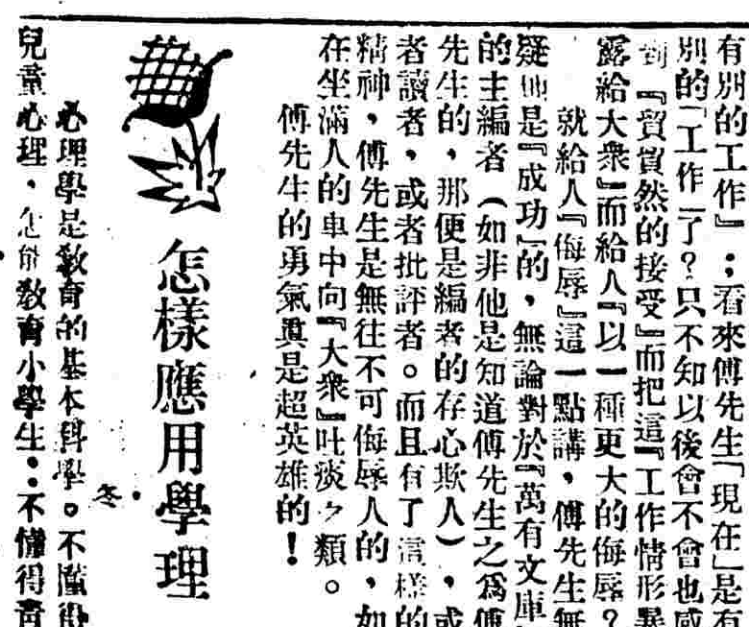 有別的工作』；看來傅先生「現在」是有
別的「工作」了？只不知以後會不會也感
到『貿貿然的接受』而把這『工作情形暴
露給大衆』而給人『以一種更大的侮辱？
就給人『侮辱』這一點講，傅先生無
疑他是『成功』的，無論對於『萬有文庫
的主編者（如非他是知道傅先生之爲傅
先生的，那便是編者的存心欺人），或
者讀者，或者批評者。而且有了這樣的
精神，傅先生是無往不可侮辱人的，如
在坐滿人的車中向『大衆』吐痰之類。
傅先生的勇氣眞是超英雄的！
怎樣應用學理
冬
心理學是敎育的基本科學。不懂得
兒童心理，怎能敎育小學生：不懂得靑